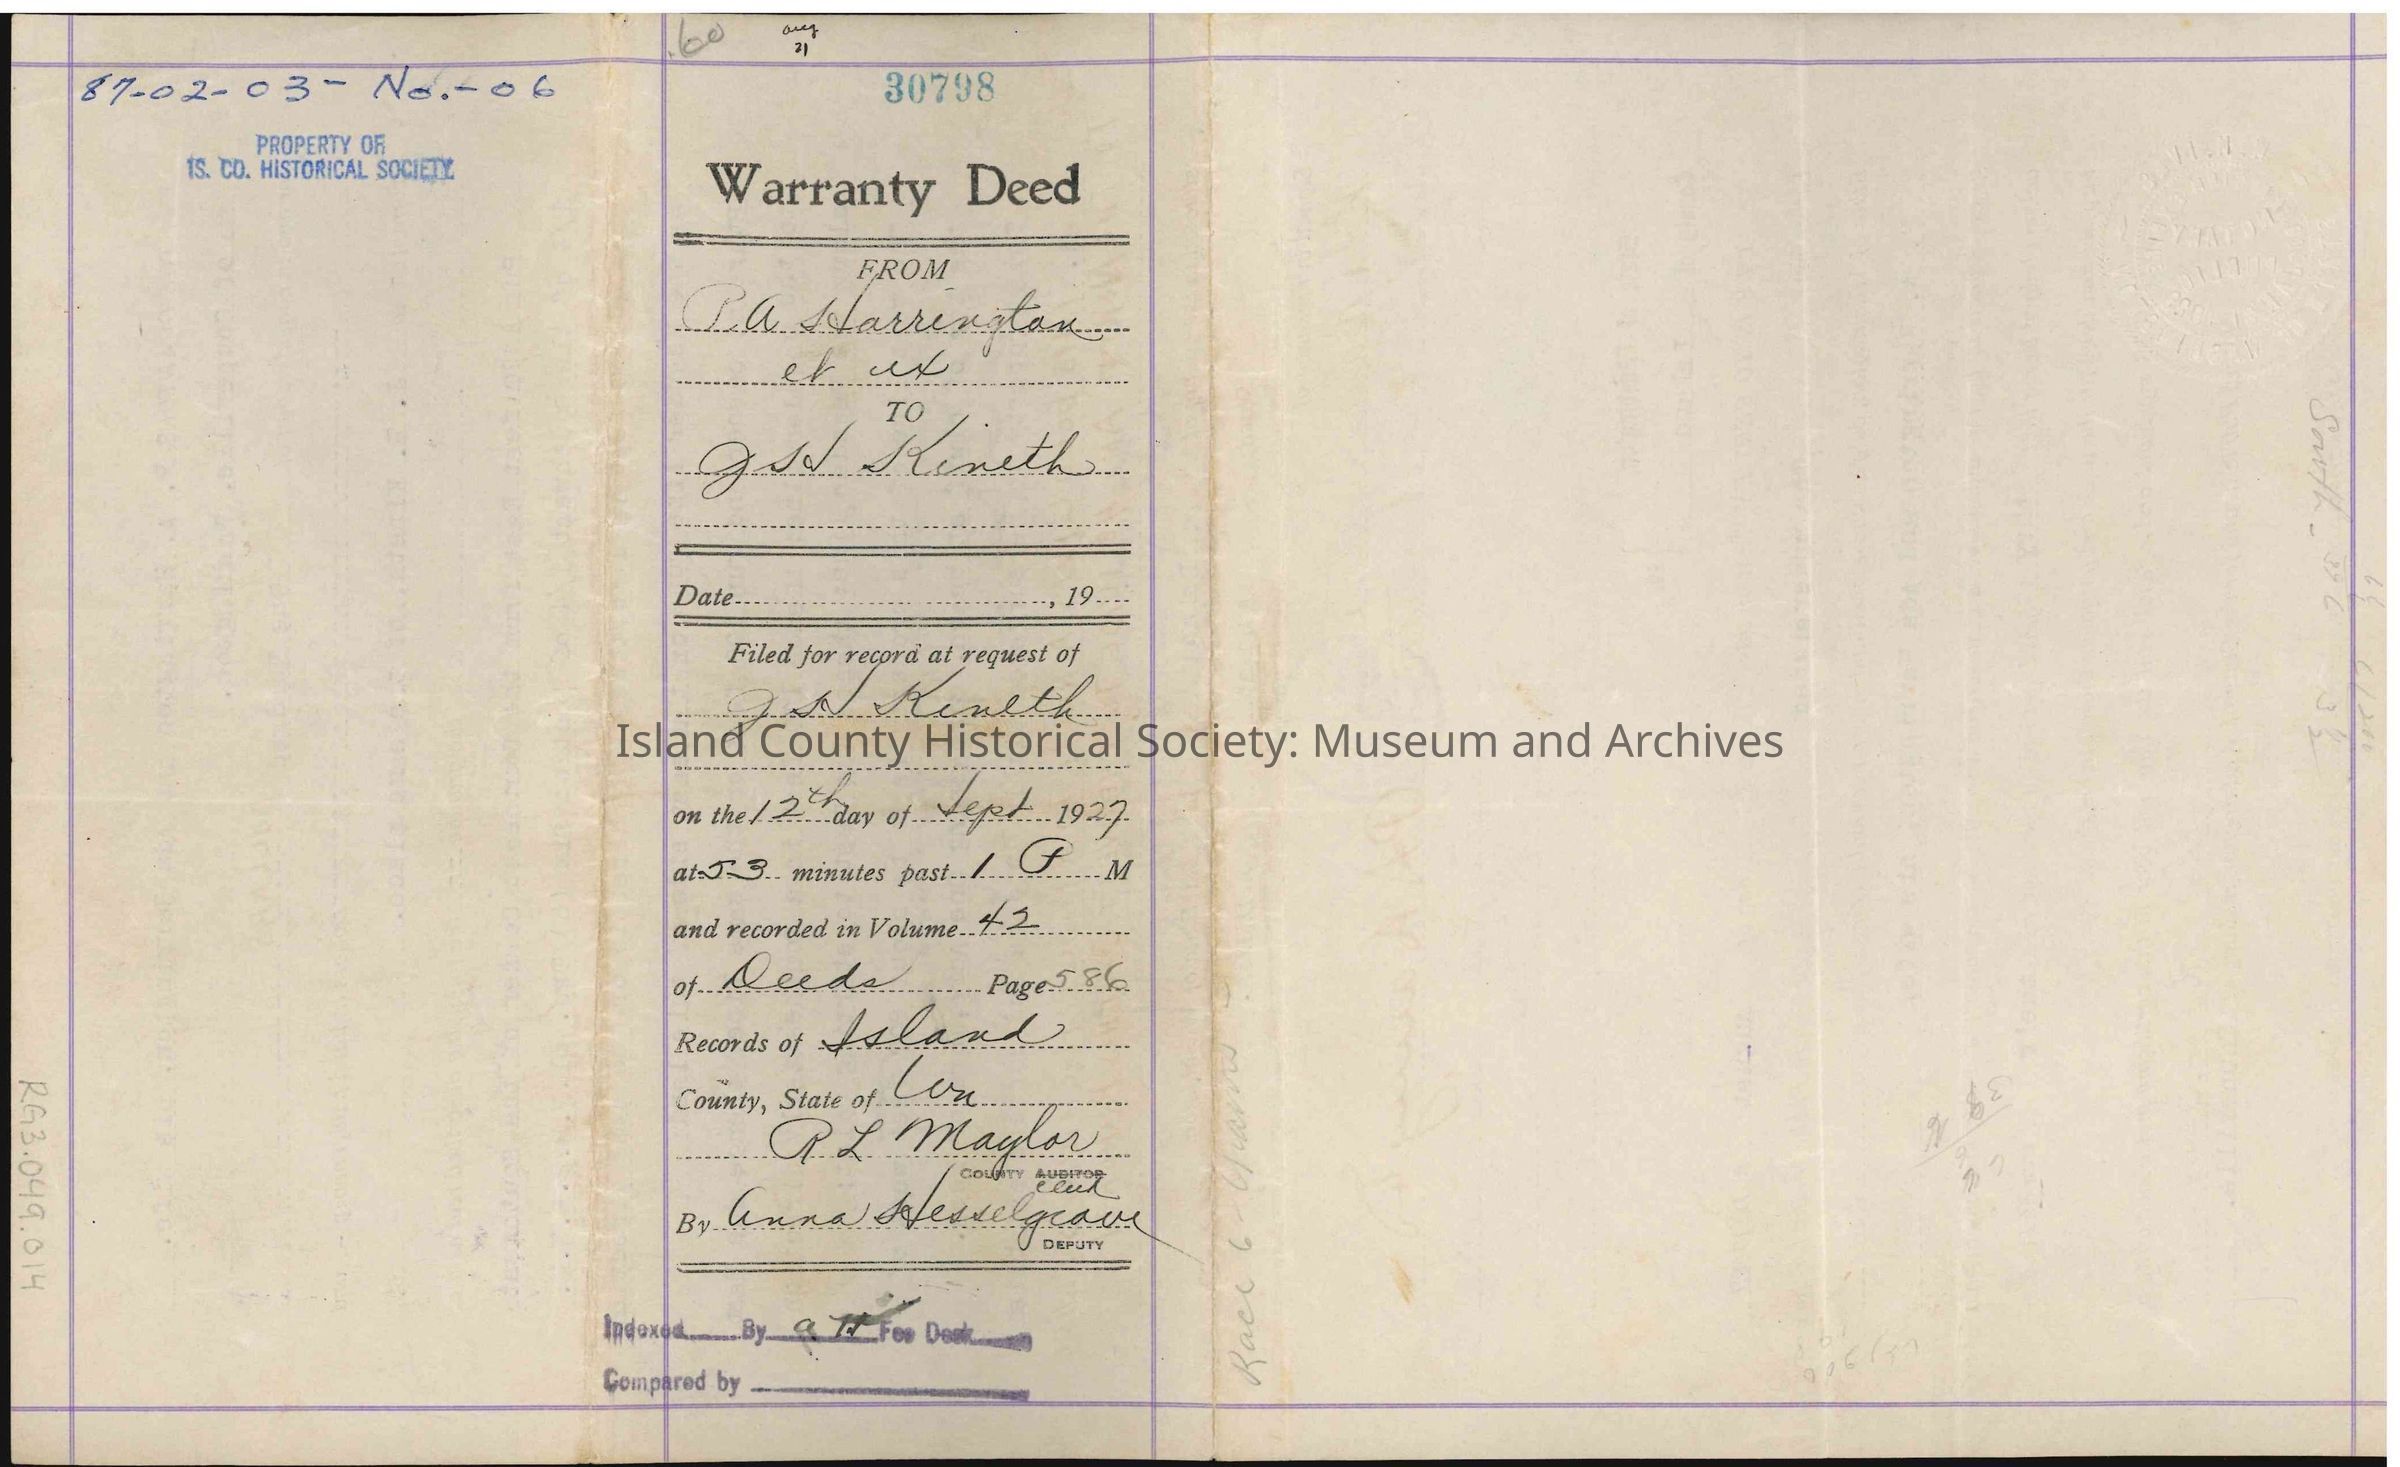 .60
aug
31
87-02-03- No.-06
30798
PROPERTY OF
IS. CO. HISTORICAL SOCIETY
Warranty Deed
FROM
P.A Harrington
et ux
TO
J H Kineth
Date , 19
Filed for record at request of
J H Kineth
Island County Historical Society: Museum and Archives
on the 12th day of Sept 1927
at 53 minutes past 1 P M
and recorded in Volume 42
of Deeds Page 586
Records of Island
County, State of Wn
R L Maylor
COUNTY AUDITOR
clerk
By Anna Hesselgrave
DEPUTY
Indexed By Fee Desk
Compared by
RG3.049.014
South -